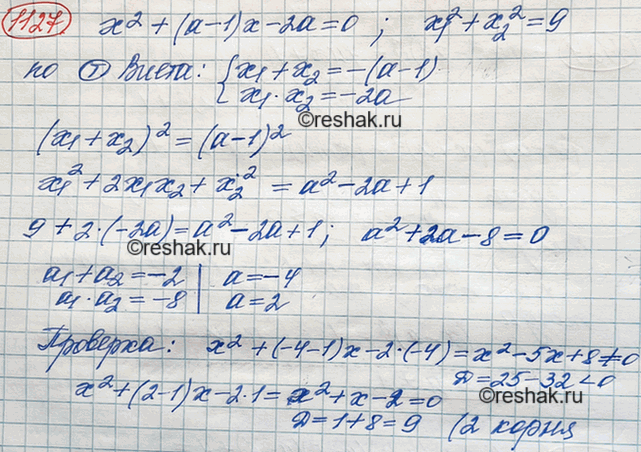 1127 x² + (a-1)x - 2a = 0 ; x₁² + x₂² = 9
по Т Виета: { x₁ + x₂ = -(a-1)
x₁ · x₂ = -2a
©reshak.ru
(x₁ + x₂)² = (a-1)²
x₁² + 2x₁x₂ + x₂² = a² - 2a + 1
9 + 2·(-2a) = a² - 2a + 1 ; a² + 2a - 8 = 0
©reshak.ru
a₁ + a₂ = -2 | a = -4
a₁ · a₂ = -8 | a = 2
Проверка: x² + (-4-1)x - 2·(-4) = x² - 5x + 8 ≠ 0
D = 25 - 32 < 0
x² + (2-1)x - 2·1 = x² + x - 2 = 0
©reshak.ru
D = 1 + 8 = 9 (2 корня